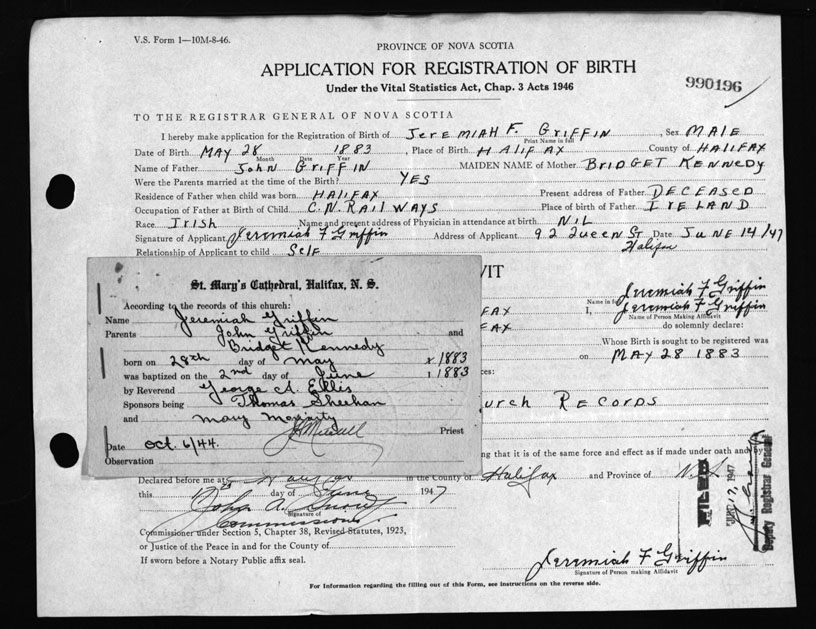 V.S. Form 1—10M-8-46.
PROVINCE OF NOVA SCOTIA
APPLICATION FOR REGISTRATION OF BIRTH
990196
Under the Vital Statistics Act, Chap. 3 Acts 1946
TO THE REGISTRAR GENERAL OF NOVA SCOTIA
I hereby make application for the Registration of Birth of JEREMIAH F. GRIFFIN, Sex MALE
Print Name in full
Date of Birth MAY 28 1883, Place of Birth HALIFAX County of HALIFAX
Month Date Year
Name of Father JOHN GRIFFIN MAIDEN NAME of Mother BRIDGET KENNEDY
Were the Parents married at the time of the Birth? YES
Residence of Father when child was born HALIFAX Present address of Father DECEASED
Occupation of Father at Birth of Child C.N. RAILWAYS Place of birth of Father IRELAND
Race Irish Name and present address of Physician in attendance at birth NIL
Signature of Applicant Jeremiah F Griffin Address of Applicant 92 Queen St Date JUNE 14/47
Halifax
Relationship of Applicant to child SELF
VIT
St. Mary's Cathedral, Halifax, N. S.
According to the records of this church:
Name Jeremiah Griffin
Parents John Griffin and
Bridget Kennedy
born on 28th day of May x 1883
was baptized on the 2nd day of June 1883
by Reverend George A. Ellis
Sponsors being Thomas Sheehan
and Mary Moriarty
Priest
Date Oct. 6/44.
Observation
Jeremiah F Griffin
Name in
FAX I, Jeremiah F Griffin
Name of Person Making Affidavit
FAX do solemnly declare:
Whose Birth is sought to be registered was
on MAY 28 1883
ces:
URCH RECORDS
ng that it is of the same force and effect as if made under oath and by
Declared before me at Halifax in the County of Halifax and Province of N.S.
this day of June 1947
John A.
Signature of
Commissioner
Commissioner under Section 5, Chapter 38, Revised Statutes, 1923,
or Justice of the Peace in and for the County of
If sworn before a Notary Public affix seal.
FILED
1947
Deputy Registrar General
Jeremiah F Griffin
Signature of Person making Affidavit
For Information regarding the filling out of this Form, see instructions on the reverse side.